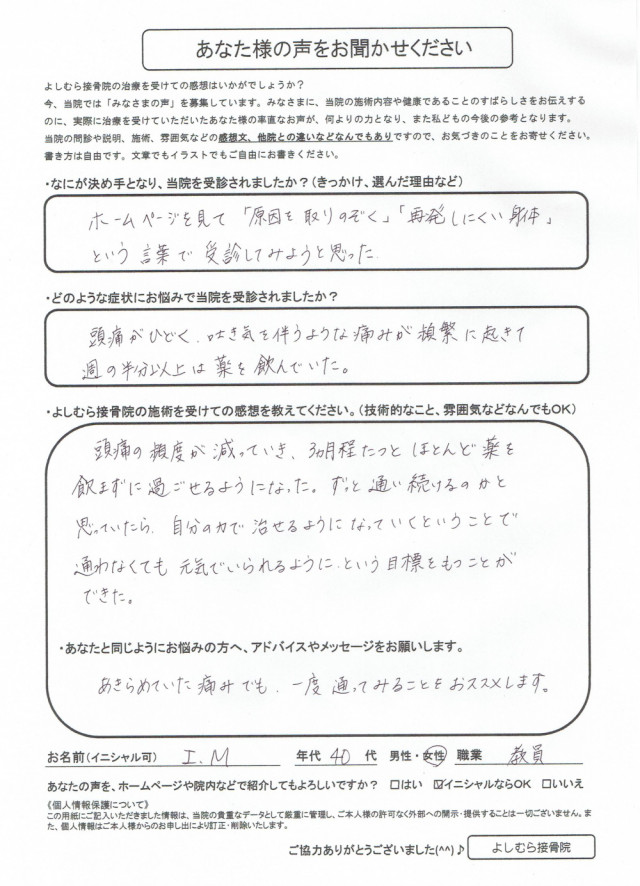 あなた様の声をお聞かせください
よしむら接骨院の治療を受けての感想はいかがでしょうか?
今、当院では「みなさまの声」を募集しています。みなさまに、当院の施術内容や健康であることのすばらしさをお伝えする
のに、実際に治療を受けていただいたあなた様の率直なお声が、何よりの力となり、また私どもの今後の参考となります。
当院の問診や説明、施術、雰囲気などの感想文、他院との違いなどなんでもありですので、お気づきのことをお寄せください。
書き方は自由です。文章でもイラストでもご自由にお書きください。
・なにが決め手となり、当院を受診されましたか?(きっかけ、選んだ理由など)
ホームページを見て「原因を取りのぞく」「再発しにくい身体」
という言葉で受診してみようと思った.
・どのような症状にお悩みで当院を受診されましたか?
頭痛がひどく、吐き気を伴うような痛みが頻繁に起きて
週の半分以上は薬を飲んでいた。
・よしむら接骨院の施術を受けての感想を教えてください。(技術的なこと、雰囲気などなんでもOK)
頭痛の頻度が減っていき、3ヵ月程たつとほとんど薬を
飲まずに過ごせるようになった。ずっと通い続けるのかと
思っていたら、自分の力で治せるようになっていくということで
通わなくても元気でいられるように、という目標をもつことが
できた。
・あなたと同じようにお悩みの方へ、アドバイスやメッセージをお願いします。
あきらめていた痛みでも、一度通ってみることをおススメします。
お名前(イニシャル可) I.M 年代 40 代 男性・女性 職業 教員
あなたの声を、ホームページや院内などで紹介してもよろしいですか? □はい ☑イニシャルならOK □いいえ
《個人情報保護について》
この用紙にご記入いただきました情報は、当院の貴重なデータとして厳重に管理し、ご本人様の許可なく外部への開示・提供することは一切ございません。ま
た、個人情報はご本人様からのお申し出により訂正・削除いたします。
ご協力ありがとうございました(^^)♪ よしむら接骨院